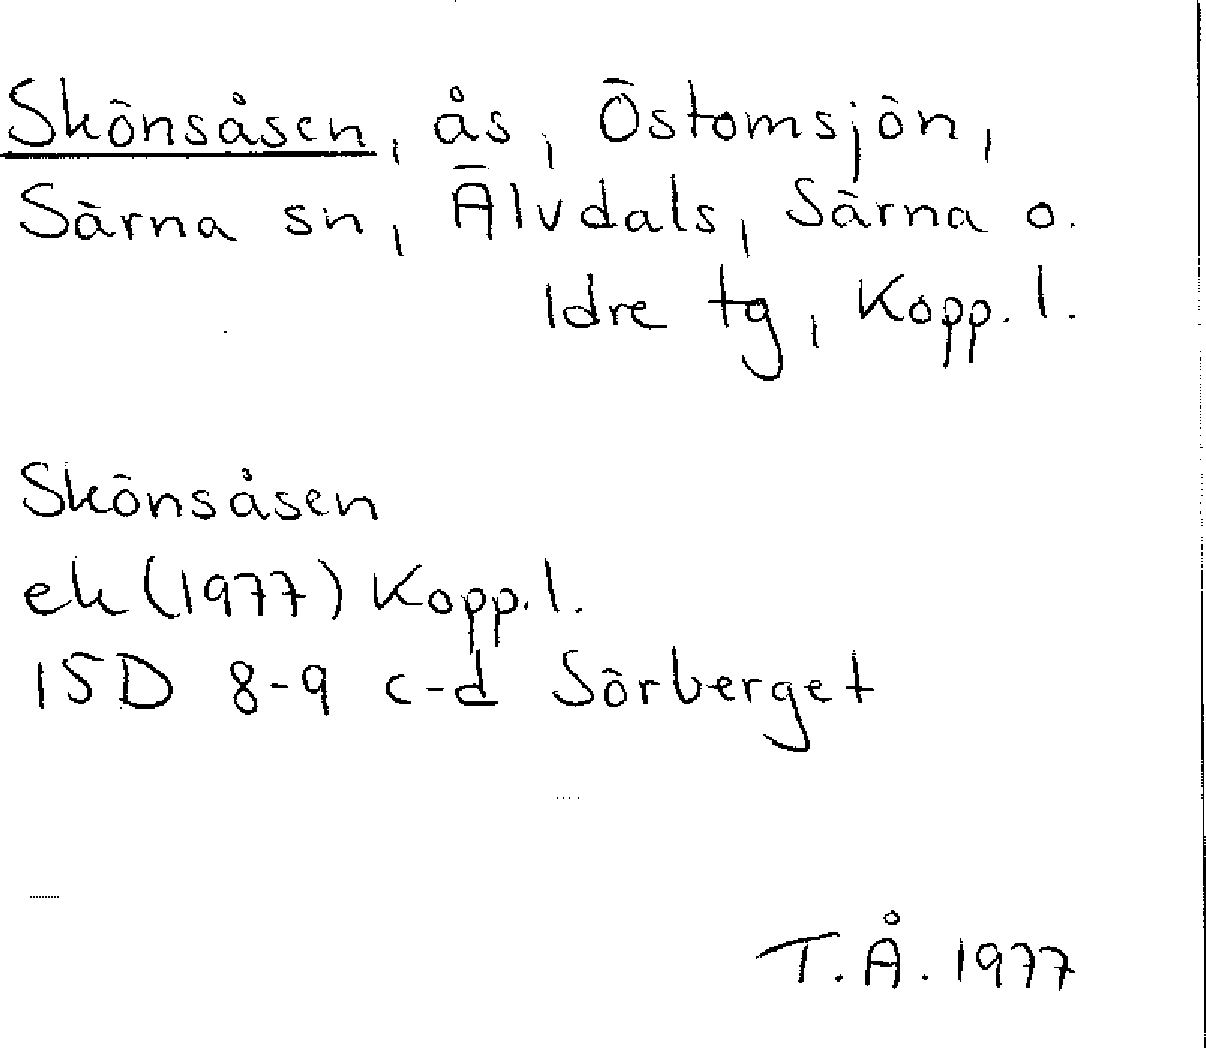 Skönsåsen, ås, Östomsjön,
Särna sn, Älvdals, Särna o.
Idre tg, Kopp. l.
Skönsåsen
ek (1977) Kopp. l.
15D 8-9 c-d Sörberget
T.Å. 1977